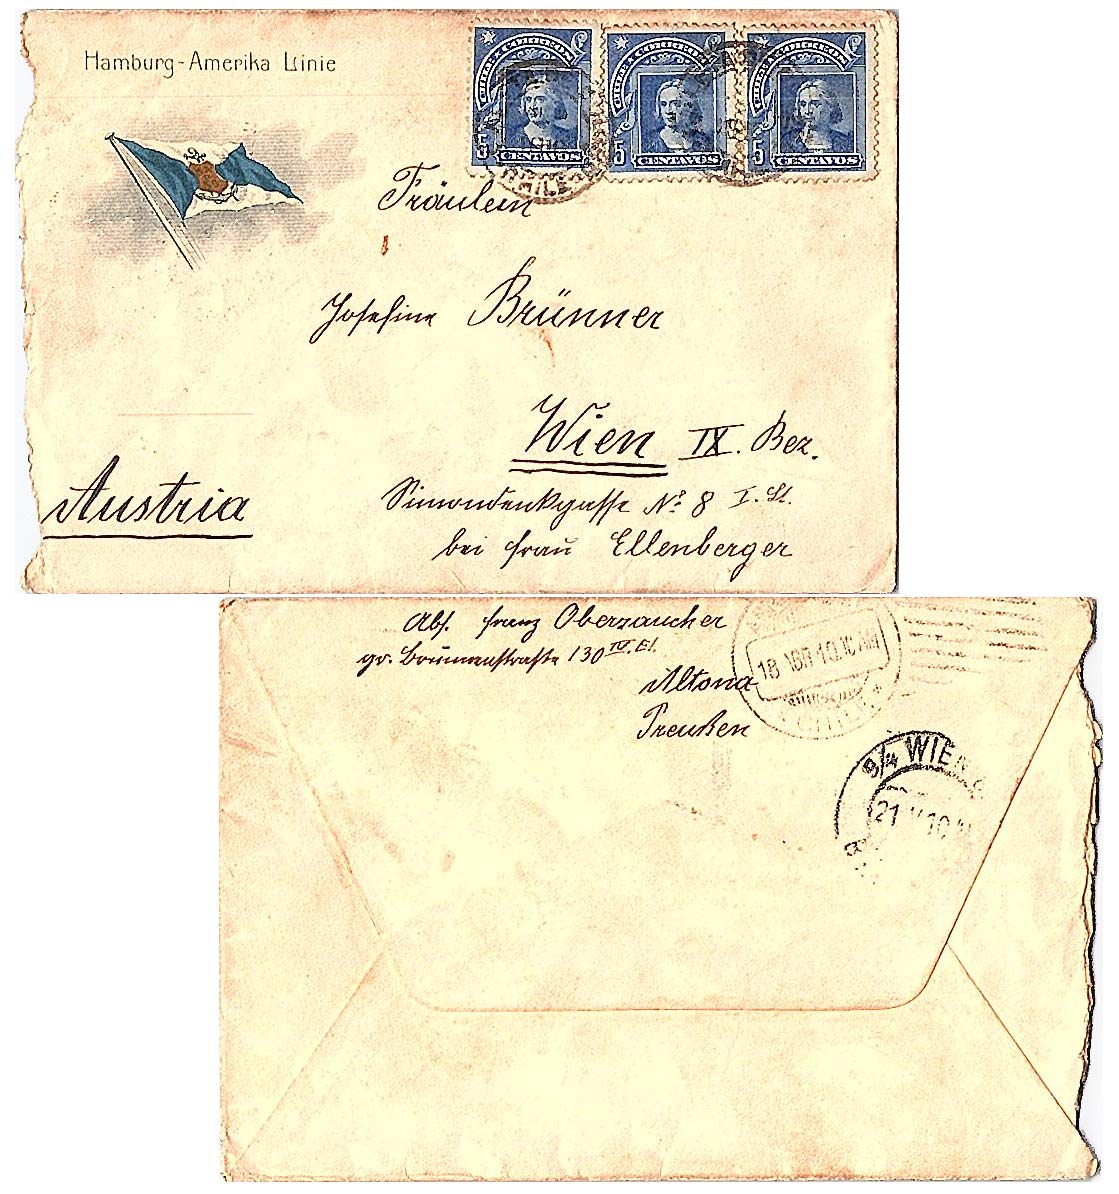 Hamburg-Amerika Linie
CHILE CORREO
5 CENTAVOS
CHILE CORREO
5 CENTAVOS
CHILE CORREO
5 CENTAVOS
CHILE
Fräulein
Josefine Brünner
Wien IX. Bez.
Austria
Simondenkgasse No. 8 I. St.
bei Frau Ellenberger
Abs. Franz Oberzaucher
gr. Brunnenstraße 130 IV. Et.
Altona
Preußen
18 ABR 10. 10 AM
CHILE
9/4 WIEN
21. V 10